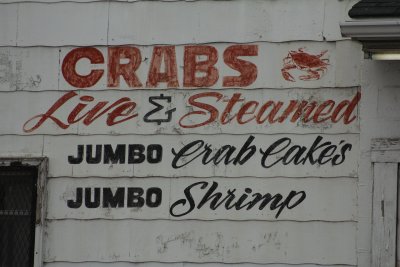 CRABS
Live & Steamed
JUMBO Crab Cake's
JUMBO Shrimp